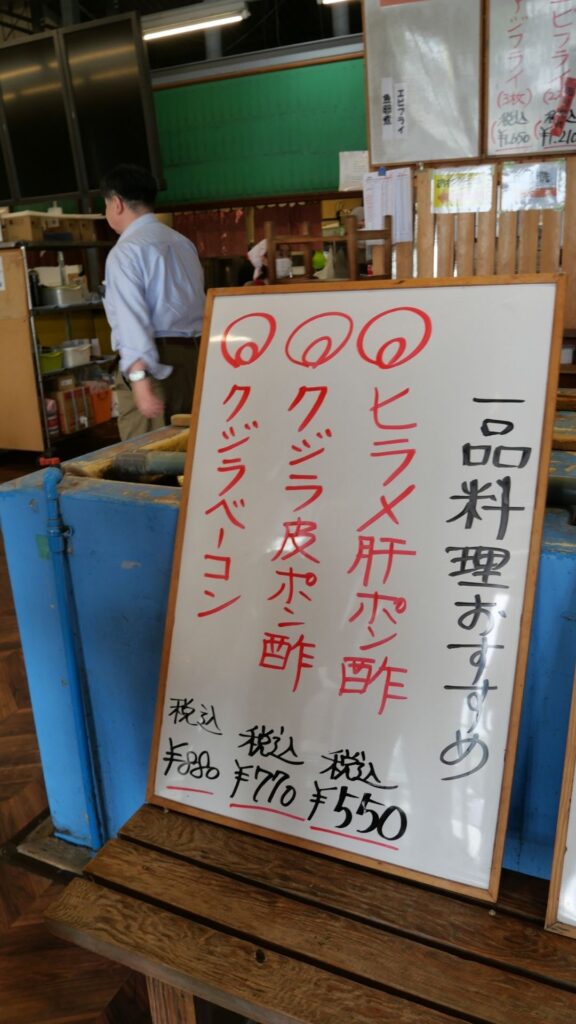 一品料理おすすめ
ヒラメ肝ポン酢
税込
¥550
クジラ皮ポン酢
税込
¥770
クジラベーコン
税込
¥880
エビフライ
アジフライ
(3枚)
税込
¥1,650
税込
¥1,210